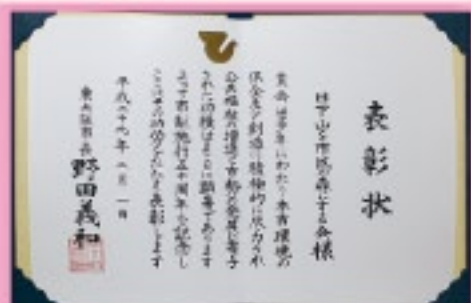 表彰状
日下山を市民の森にする会様
貴会は多年にわたり本市環境の
保全及び創造に積極的に尽力され
公共福祉の増進と市勢の発展に寄与
された功績はまことに顕著であります
よって市制施行五十周年を記念し
ここにその功労をたたえ表彰します
平成二十九年二月一日
東大阪市長 野田義和